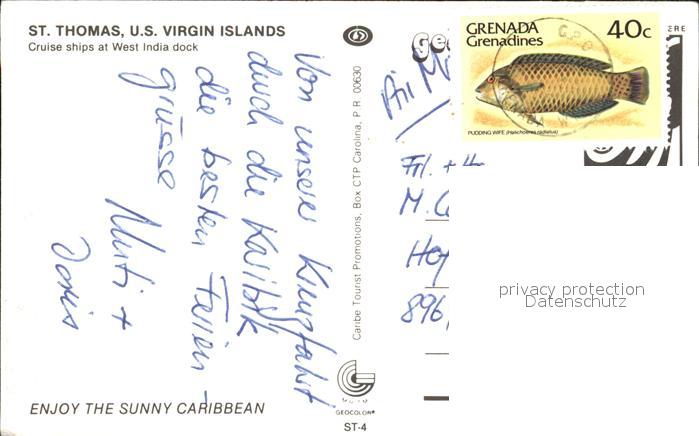 ST. THOMAS, U.S. VIRGIN ISLANDS
Cruise ships at West India dock
Von unserer Kreuzfahrt
durch die Karibik
die besten Ferien-
grüsse
Muti +
Doris
ENJOY THE SUNNY CARIBBEAN
Caribe Tourist Promotions, Box CTP Carolina, P.R. 00630
GEOCOLOR®
ST-4
GRENADA 40c
Grenadines
PUDDING WIFE (Halichoeres radiatus)
G.P.O
ERE
Frl. +
M.
896
privacy protection
Datenschutz